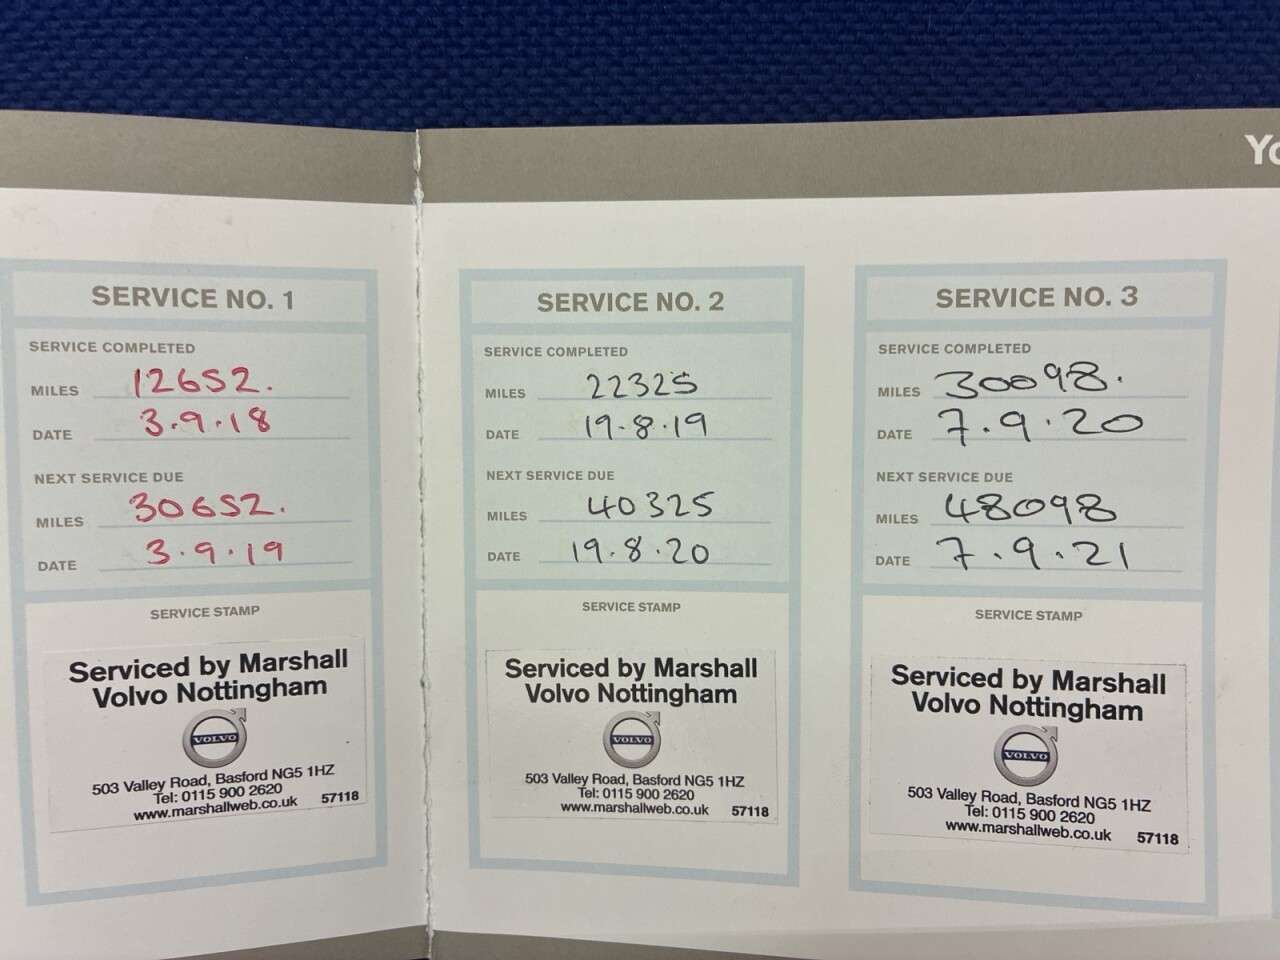 Yo
SERVICE NO. 1
SERVICE COMPLETED
MILES 12652.
DATE 3.9.18
NEXT SERVICE DUE
MILES 30652.
DATE 3.9.19
SERVICE STAMP
Serviced by Marshall
Volvo Nottingham
VOLVO
503 Valley Road, Basford NG5 1HZ
Tel: 0115 900 2620
www.marshallweb.co.uk 57118
SERVICE NO. 2
SERVICE COMPLETED
MILES 22325
DATE 19.8.19
NEXT SERVICE DUE
MILES 40325
DATE 19.8.20
SERVICE STAMP
Serviced by Marshall
Volvo Nottingham
VOLVO
503 Valley Road, Basford NG5 1HZ
Tel: 0115 900 2620
www.marshallweb.co.uk 57118
SERVICE NO. 3
SERVICE COMPLETED
MILES 30098.
DATE 7.9.20
NEXT SERVICE DUE
MILES 48098
DATE 7.9.21
SERVICE STAMP
Serviced by Marshall
Volvo Nottingham
VOLVO
503 Valley Road, Basford NG5 1HZ
Tel: 0115 900 2620
www.marshallweb.co.uk 57118